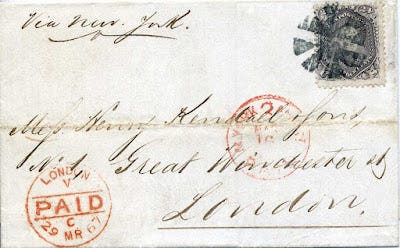 Via New York.
Mess. Henry Kendall & Sons,
No 1, Great Winchester St
London.
LONDON
V
PAID
C
29 MR 67